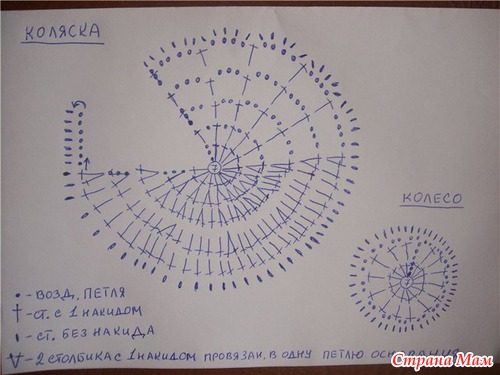 КОЛЯСКА
7
КОЛЕСО
- ВОЗД. ПЕТЛЯ
- СТ. С 1 НАКИДОМ
- СТ. БЕЗ НАКИДА
- 2 СТОЛБИКА С 1 НАКИДОМ ПРОВЯЗАН. В ОДНУ ПЕТЛЮ ОСНОВАНИЯ
Страна Мам